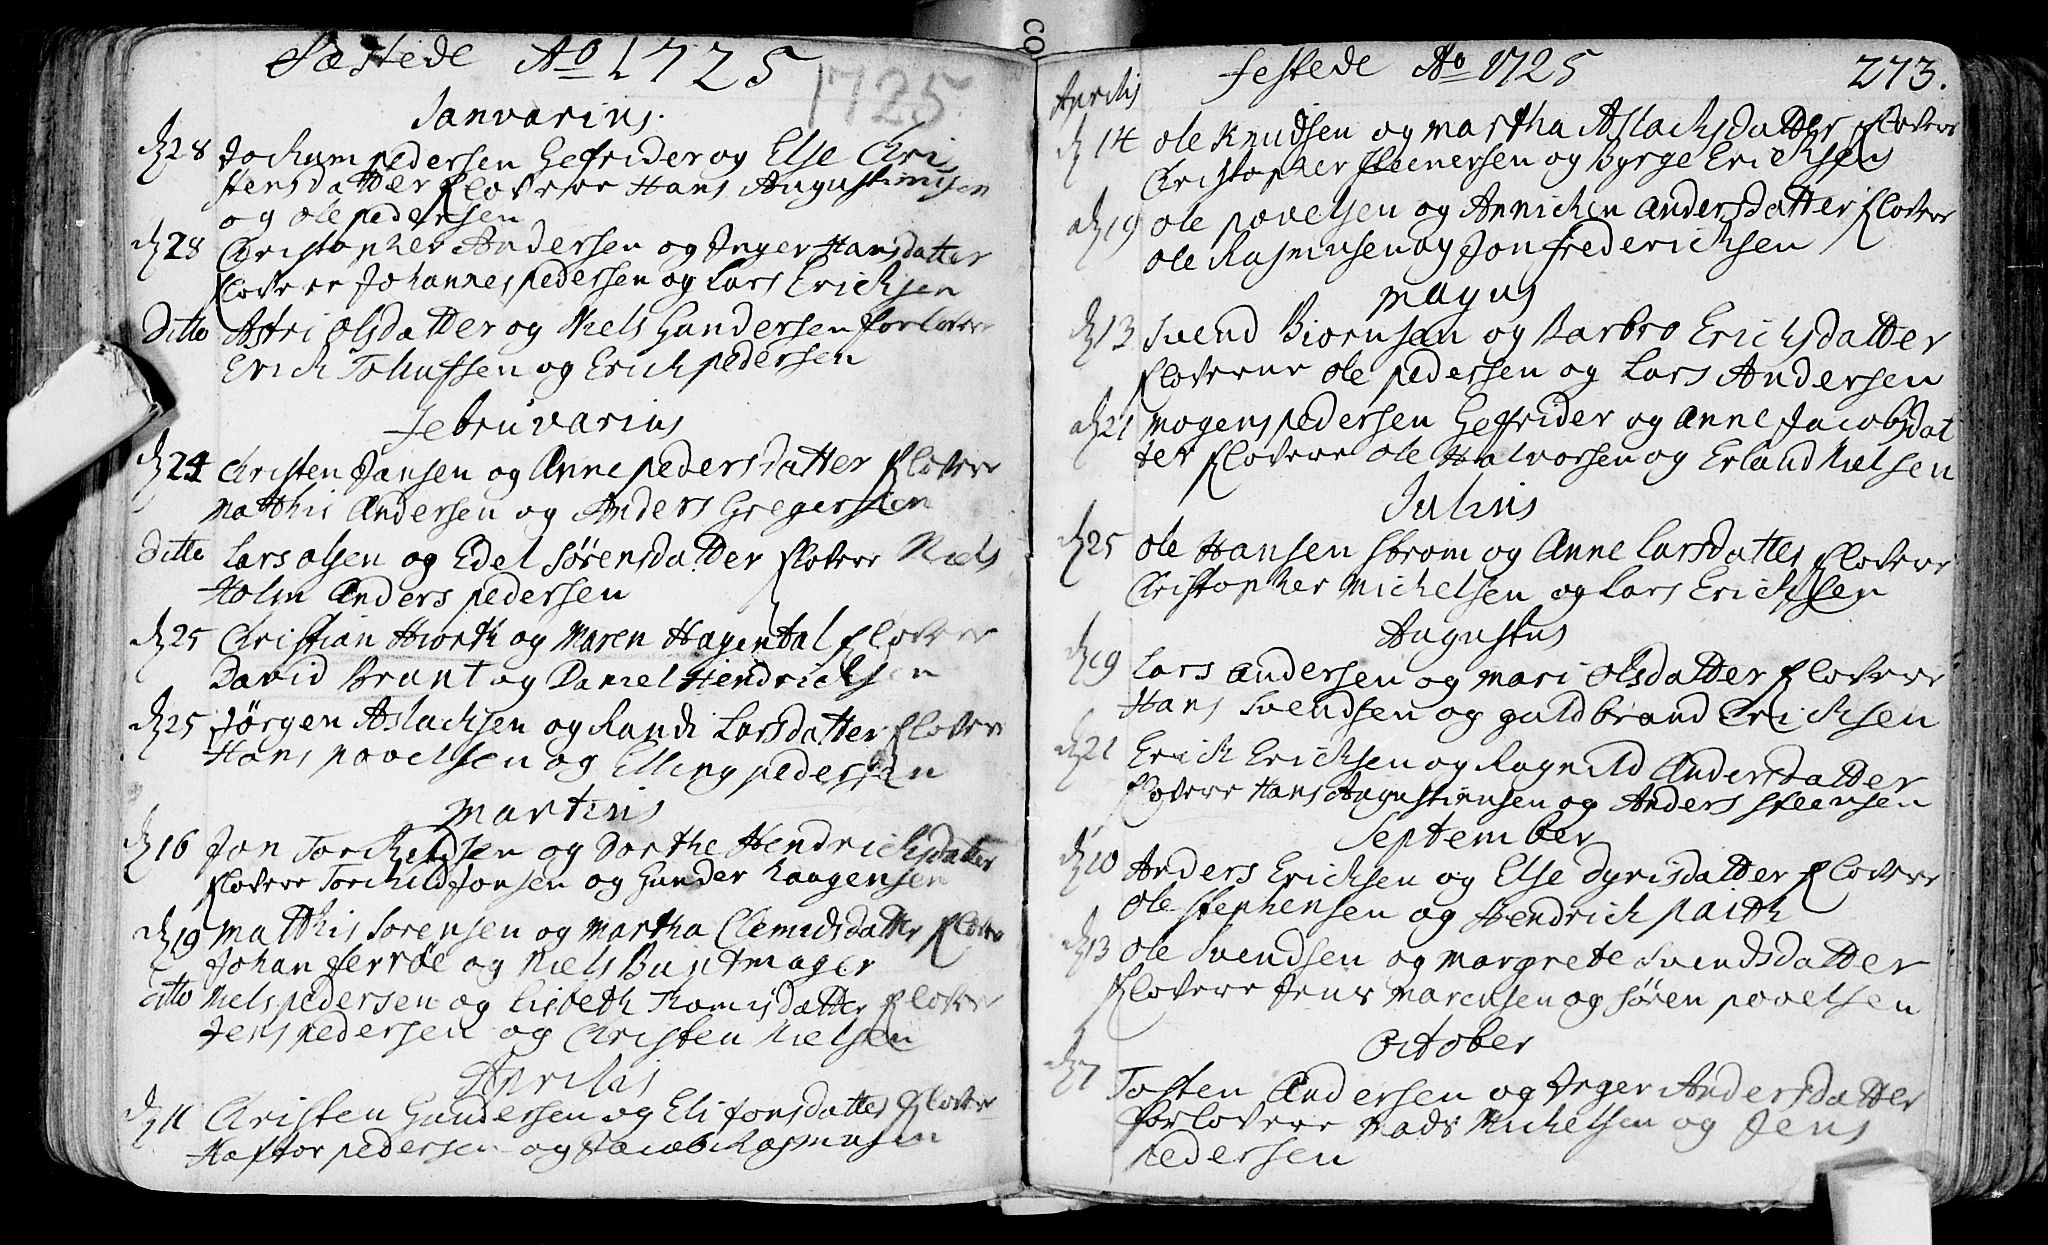 Fæstede Ao 1725
1725
Janvarius.
d 28 Jochum pedersen Gefrider og Else Chri
stensdatter floverr Hans Augustinusen
og ole pedersen
d 28 Christopher Andersen og Inger Hansdatter
floverr Johannes pedersen og Lars Ericksen
Ditto Astri olsdatter og Niels Gundersen forloverr
Erick Toluffsen og Erick pedersen
Februvarius
d 24 Christen Jansen og Anne pedersdatter floverr
Matthis Andersen og Anders Gregersen
ditto Lars olsen og Edel Sørensdatter floverr Niels
Holm Anders pedersen
d 25 Christian Hiorth og Maren Hagendal floverr
David Brunt og Daniel Hendrichsen
d 25 Jørgen Aslachsen og Randi Larsdatter floverr
Hans povelsen og Elling pedersen
Martius
d 16 Jon Torchildsen og Dorthe Hendrichsdatter
floverr Torchild Jonsen og Gunder Raagensen
d 19 Matthis Sorensen og Martha Clemidsdatter floverr
Johan Ferröe og Niels Buntmager
ditto Niels pedersen og Lisbeth Thomisdatter floverr
Jens pedersen og Christen Nielsen
Aprilis
d 11 Christen Gundersen og Eli Jonsdatter floverr
Haftor pedersen og Jacob Rasmusen
festede Ao 1725 273.
Aprilis
d 14 ole Knudsen og martha Aslachsdatter floverr
Christopher Steenersen og Byrge Ericksen
d 19 ole povelsen og Annichen Andersdatter floverr
ole Rasmusen og Jon frederichsen
Majus
d 13 Svend Biørnsen og Barbro Erichsdatter
floverne ole pedersen og Lars Andersen
d 21 Mogens pedersen Gefrider og Anne Jacobsdat
ter floverr ole Halvorsen og Erland Nielsen
Julius
d 25 ole Hansen Strøm og Anne Larsdatter floverr
Christopher Michelsen og Lars Ericksen
Augustus
d 19 Lars Andersen og mari olsdatter floverr
Hans Svendsen og guldbrand Ericksen
d 21 Erick Ericksen og Ragnild Andersdatter
floverr Hans Augustinusen og Anders Steensen
September
d 10 Anders Ericksen og Else Dyrisdatter floverr
ole Stephensen og Hendrich paith
d 13 ole Svendsen og Margrete Svendsdatter
floverr Jens Marcusen og Søren povelsen
October
d 7 Tosten Andersen og Inger Andersdatter
forloverr Mads Michelsen og Jens
pedersen